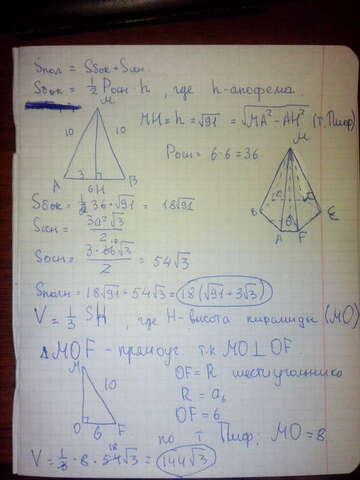 Sпол = Sбок + Sосн
Sбок = 1/2 Pосн · h, где h-апофема
M
10 10
A 3 6 H B
MH = h = √91 = √(MA² - AH²) (т. Пиф)
Pосн = 6·6 = 36
M
B A F E
6
Sбок = 1/2 36 · √91 = 18√91
Sосн = 3a²√3/2
Sосн = 3·36√3/2 = 54√3
Sполн = 18√91 + 54√3 = 18(√91 + 3√3)
V = 1/3 SH, где H-высота пирамиды (MO)
△MOF - прямоуг. т.к MO⊥OF
M
10
O 6 F
OF = R шестиугольника
R = a₆
OF = 6
по т Пиф: MO = 8
V = 1/3 · 8 · 54√3 = 144√3
18